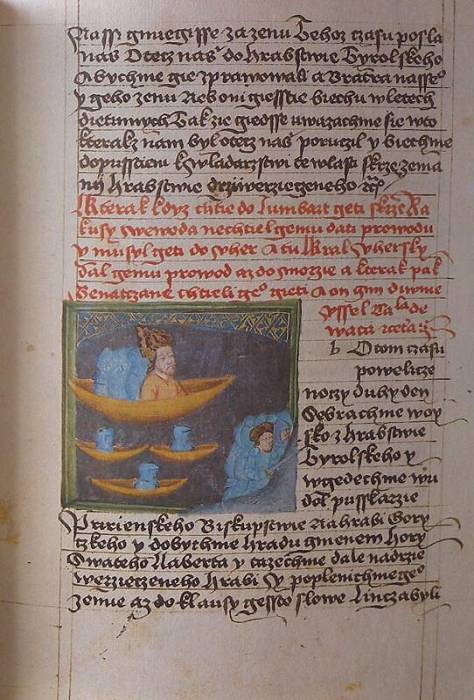 Nassi gmiegisse za zenu Tehoz czasu posla
nas Otetz nas do Hrabstwie Tyrolskeho
Abychme gie zprawowali a Bratra nasseo
y geho zenu Neb oni giesstie biechu w letech
dietinnych Tak zie gedosse uwazachme sie w to
kterakz nam byl otetz nas poruczil y biechme
dopusstieni k wladarzstwi te wlasti skrze zema
nij Hrabstwie
Kterak kdyz chtie do Lumbart geti skrze Ra
kusy Swewoda nechtiel gemu dati prowodu
y musyl geti do Uher A tu Kral Uhersky
dal gemu prowod az do morzie a kterak pak
Benatczane chtieli geo gieti A on gim
b O tom czasu
po welicze
noczy duby den
Sebrachme woy
sko z Hrabstwie
Tyrolskeho y
wgedechme w u
dol pusstarzie
Biskupstwie Na hrabi Gory
tzkeho y dobychme Hradu gmenem Hory
Swateho a dale nadrzie
Hrabi Sy poplenichme geo
zemie az do klausy gessto slowe